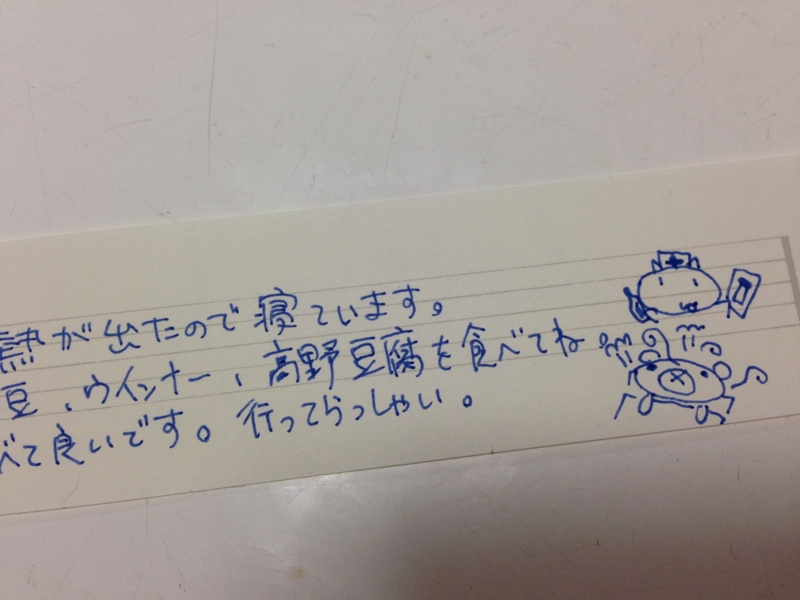 熱が出たので寝ています。
豆、ウインナー、高野豆腐を食べてね
べて良いです。行ってらっしゃい。